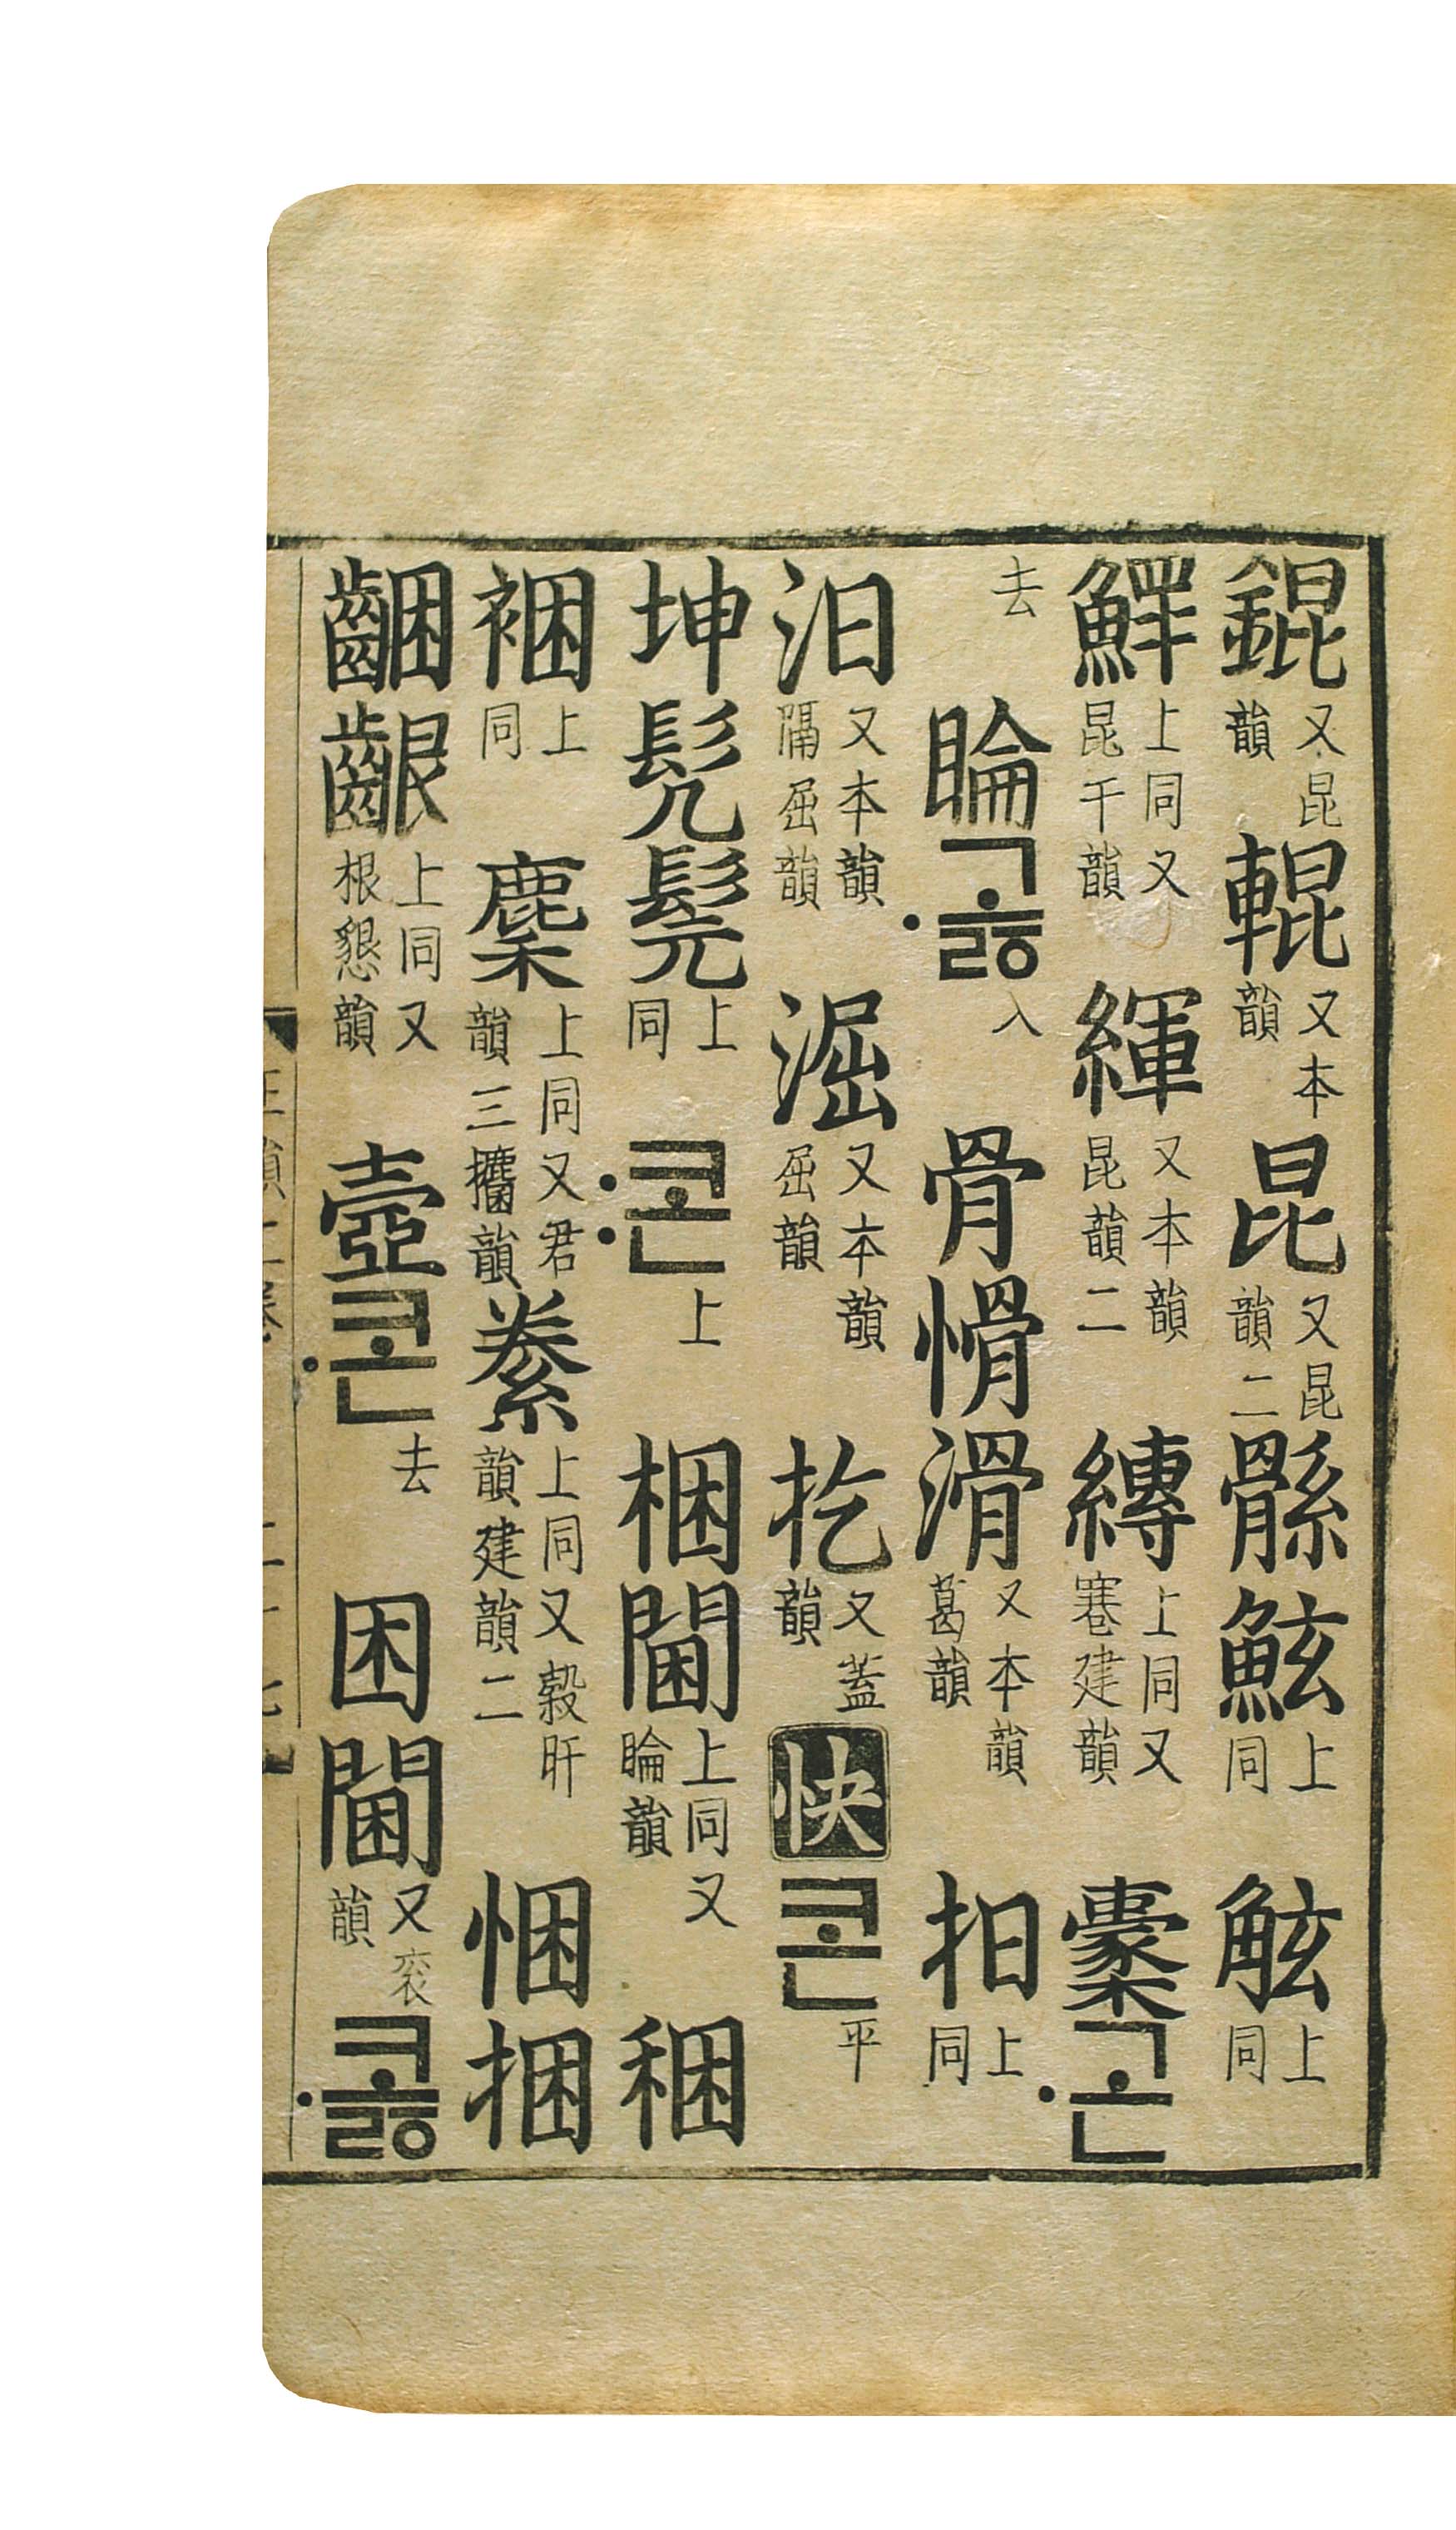 錕 又昆韻 輥 又本韻 昆 又昆韻二 鮌 上同 上同
上同又昆干韻 緷 又本韻昆韻二 縳 上同又寋建韻 㯻 ·곤
去 睔 ·고ᇙ 入 骨愲滑 又本韻葛韻 抇 上同
汩 又本韻隔屈韻 淈 又本韻屈韻 扢 又蓋韻 快 콘 平
坤髡髨 上同 :콘 上 梱閫 上同又睔韻 稇
裍 上同 麇 上同又君韻三攟韻 絭 上同又穀旰韻建韻二 悃捆
齫齦 上同又根懇韻 壼 ·콘 去 困閫 又袞韻 ·코ᇙ